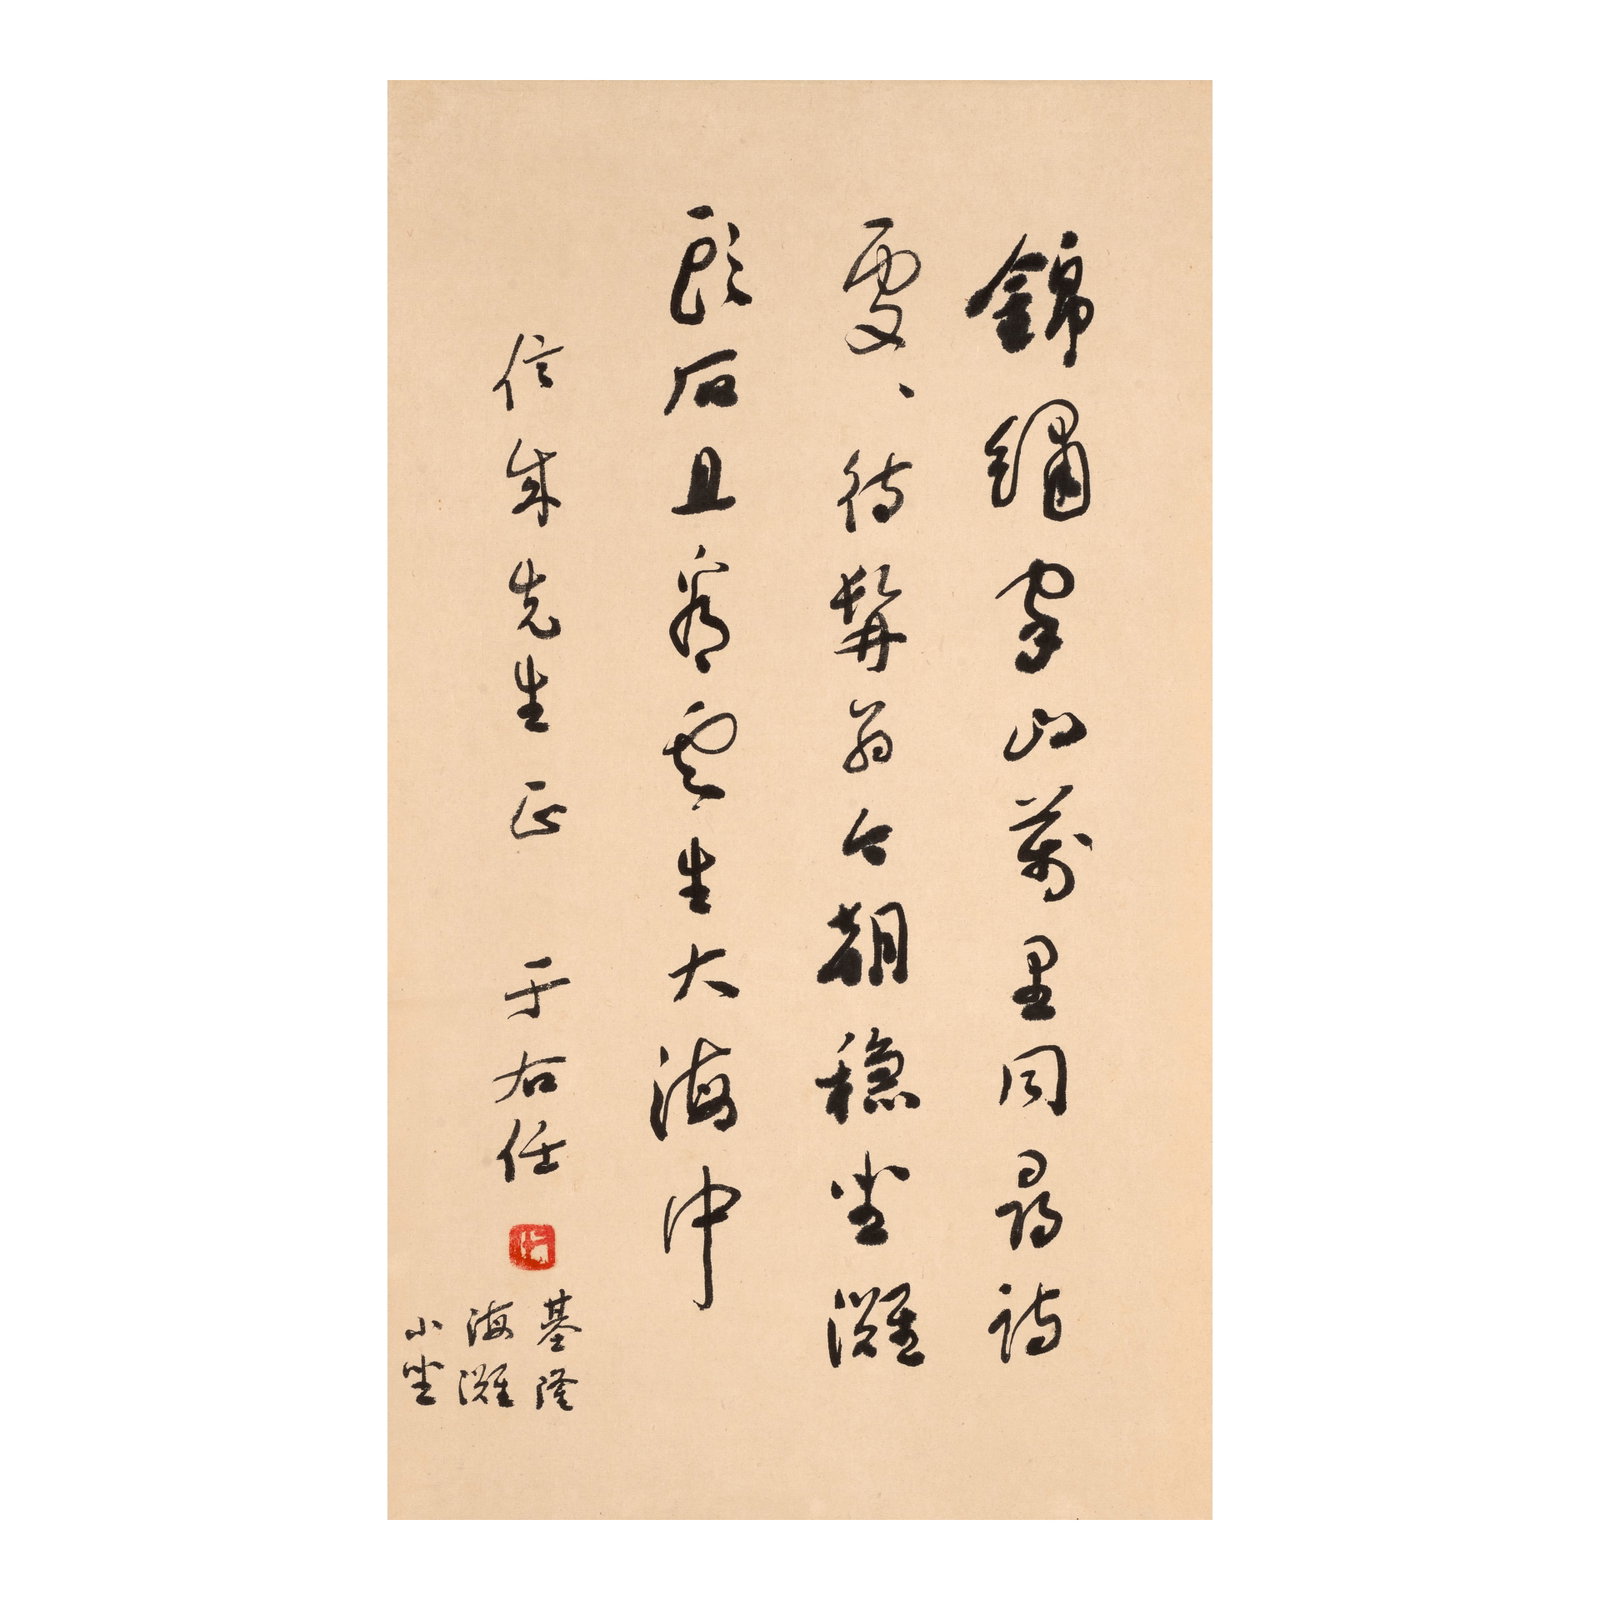 錦繡家山萬里同尋詩
處、待髯翁今朝穩坐灘
頭石且看雲生大海中
信先生正 于右任
基隆
海灘
小坐